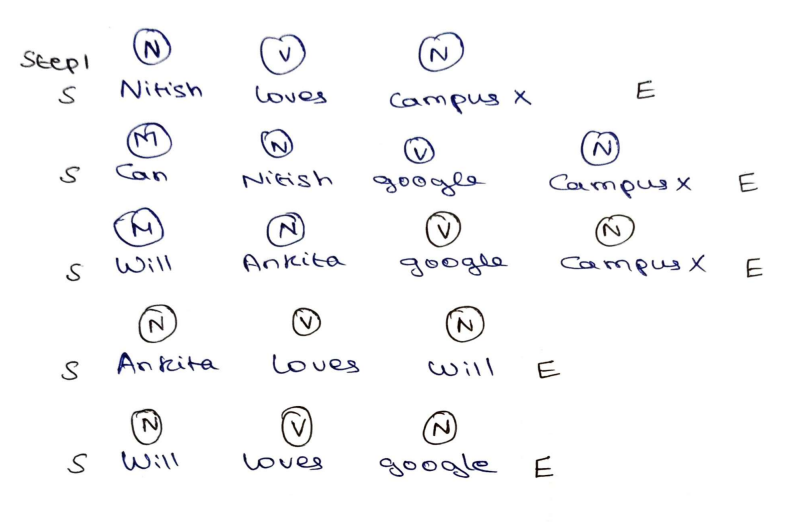 Step1 N V N
S Nitish loves Campus X E
M N V N
S Can Nitish google Campus X E
M N V N
S Will Ankita google Campus X E
N V N
S Ankita loves will E
N V N
S Will loves google E